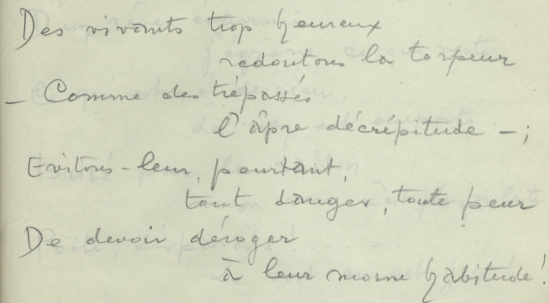 Des vivants trop heureux
redoutons la torpeur
– Comme des trépassés
l'âpre décrépitude – ;
Evitons-leur, pourtant,
tout danger, toute peur
De devoir déroger
à leur morne habitude !